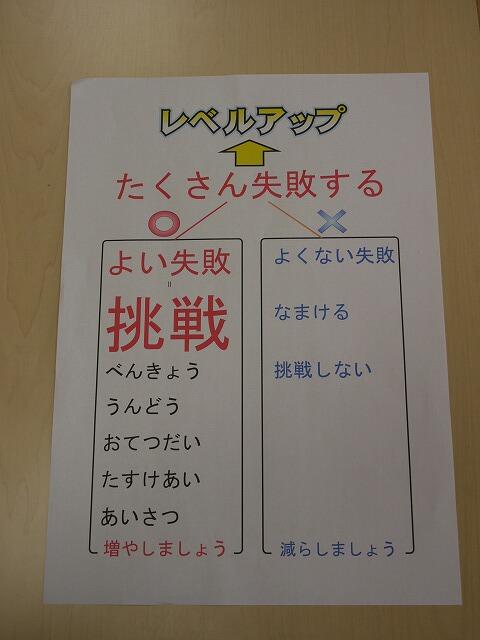 レベルアップ
たくさん失敗する
よい失敗
=
挑戦
べんきょう
うんどう
おてつだい
たすけあい
あいさつ
増やしましょう
よくない失敗
なまける
挑戦しない
減らしましょう